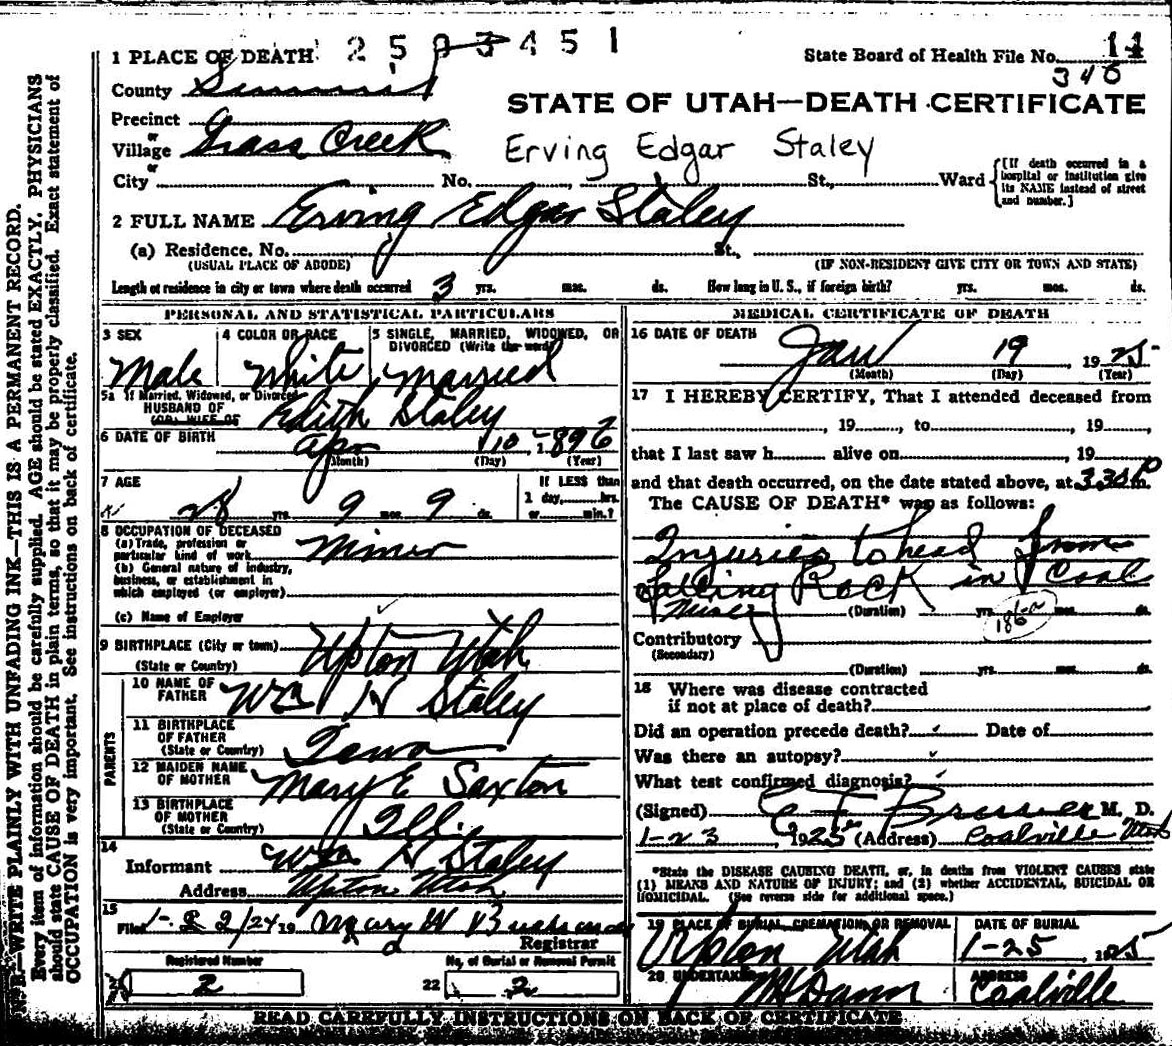 1 PLACE OF DEATH 2503451
State Board of Health File No. 11
346
County Summit
STATE OF UTAH—DEATH CERTIFICATE
Precinct
or
Village Grass Creek
Erving Edgar Staley
or
City No. St., Ward
[If death occurred in a hospital or institution give its NAME instead of street and number.]
2 FULL NAME Erving Edgar Staley
(a) Residence. No. St.,
(USUAL PLACE OF ABODE) (IF NON-RESIDENT GIVE CITY OR TOWN AND STATE)
Length of residence in city or town where death occurred 3 yrs. mos. ds. How long in U. S., if foreign birth? yrs. mos. ds.
PERSONAL AND STATISTICAL PARTICULARS
3 SEX Male
4 COLOR OR RACE White
5 SINGLE, MARRIED, WIDOWED, OR DIVORCED (Write the word) Married
5a If Married, Widowed, or Divorced
HUSBAND OF Edith Staley
(OR) WIFE OF
6 DATE OF BIRTH Apr 10, 1896
(Month) (Day) (Year)
7 AGE 28 yrs. 9 mos. 9 ds.
If LESS than
1 day, hrs.
or min.?
8 OCCUPATION OF DECEASED
(a) Trade, profession or
particular kind of work Miner
(b) General nature of industry,
business, or establishment in
which employed (or employer)
(c) Name of Employer
9 BIRTHPLACE (City or town) Upton Utah
(State or Country)
PARENTS
10 NAME OF
FATHER Wm H Staley
11 BIRTHPLACE
OF FATHER
(State or Country) Iowa
12 MAIDEN NAME
OF MOTHER Mary E Saxton
13 BIRTHPLACE
OF MOTHER
(State or Country) Ill.
14
Informant Wm H Staley
Address Upton Utah
15
Filed 1-22/24 19 Mary W
Registrar
Registered Number
21 2
No. of Burial or Removal Permit
22 2
MEDICAL CERTIFICATE OF DEATH
16 DATE OF DEATH
Jan 19, 1925
(Month) (Day) (Year)
17 I HEREBY CERTIFY, That I attended deceased from
, 19 , to , 19 ,
that I last saw h alive on , 19
and that death occurred, on the date stated above, at 3 30 P m.
The CAUSE OF DEATH* was as follows:
Injuries to head from
falling Rock in Coal
Mine
(Duration) yrs. mos. ds.
186-a
Contributory
(Secondary)
(Duration) yrs. mos. ds.
18 Where was disease contracted
if not at place of death?
Did an operation precede death? Date of
Was there an autopsy?
What test confirmed diagnosis?
(Signed) M. D.
1-23, 1925 (Address) Coalville Utah
*State the DISEASE CAUSING DEATH, or, in deaths from VIOLENT CAUSES state
(1) MEANS AND NATURE OF INJURY; and (2) whether ACCIDENTAL, SUICIDAL OR
HOMICIDAL. (See reverse side for additional space.)
19 PLACE OF BURIAL, CREMATION, OR REMOVAL
Upton Utah
DATE OF BURIAL
1-25 1925
20 UNDERTAKER
ADDRESS
Coalville
READ CAREFULLY INSTRUCTIONS ON BACK OF CERTIFICATE
N. B.—WRITE PLAINLY WITH UNFADING INK—THIS IS A PERMANENT RECORD.
Every item of information should be carefully supplied. AGE should be stated EXACTLY. PHYSICIANS
should state CAUSE OF DEATH in plain terms, so that it may be properly classified. Exact statement of
OCCUPATION is very important. See instructions on back of certificate.